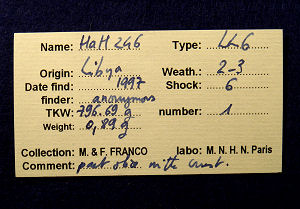 Name: HaH 246 Type: LL6
Origin: Libya Weath.: 2-3
Date find: 1997 Shock: 6
finder: anonymous
TKW: 796.69 g number: 1
Weight: 0,89 g
Collection: M. & F. FRANCO labo: M. N. H. N. Paris
Comment: part slice with crust.